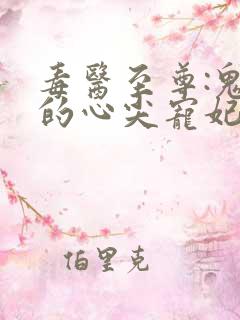 毒醫至尊:鬼
的心尖寵妃
伯里克